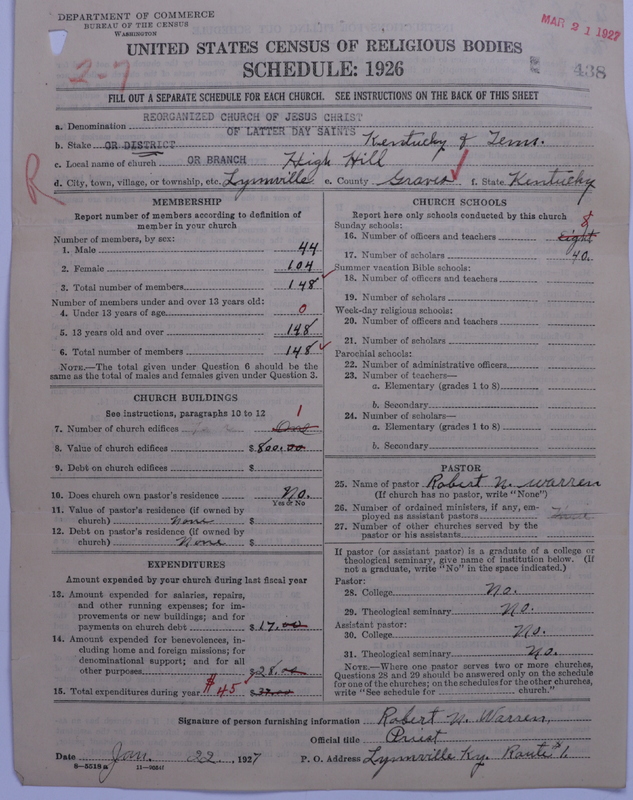 DEPARTMENT OF COMMERCE
BUREAU OF THE CENSUS
WASHINGTON
MAR 21 1927
UNITED STATES CENSUS OF RELIGIOUS BODIES
SCHEDULE: 1926
2-7
438
FILL OUT A SEPARATE SCHEDULE FOR EACH CHURCH. SEE INSTRUCTIONS ON THE BACK OF THIS SHEET
REORGANIZED CHURCH OF JESUS CHRIST
a. Denomination
OF LATTER DAY SAINTS
b. Stake OR DISTRICT Kentucky & Tenn.
c. Local name of church OR BRANCH High Hill
R
d. City, town, village, or township, etc. Lynnville e. County Graves f. State Kentucky
MEMBERSHIP
Report number of members according to definition of member in your church
Number of members, by sex:
1. Male 44
2. Female 104
3. Total number of members 148
Number of members under and over 13 years old:
4. Under 13 years of age 0
5. 13 years old and over 148
6. Total number of members 148
NOTE.—The total given under Question 6 should be the same as the total of males and females given under Question 3.
CHURCH BUILDINGS
See instructions, paragraphs 10 to 12
1
7. Number of church edifices One
8. Value of church edifices $800.00
9. Debt on church edifices $
10. Does church own pastor's residence No.
Yes or No
11. Value of pastor's residence (if owned by
church) None $
12. Debt on pastor's residence (if owned by
church) None $
EXPENDITURES
Amount expended by your church during last fiscal year
13. Amount expended for salaries, repairs,
and other running expenses; for im-
provements or new buildings; and for
payments on church debt $17.00
14. Amount expended for benevolences, in-
cluding home and foreign missions; for
denominational support; and for all
other purposes $28.00
15. Total expenditures during year $45
CHURCH SCHOOLS
Report here only schools conducted by this church
Sunday schools:
8
16. Number of officers and teachers Eight
17. Number of scholars 40.
Summer vacation Bible schools:
18. Number of officers and teachers
19. Number of scholars
Week-day religious schools:
20. Number of officers and teachers
21. Number of scholars
Parochial schools:
22. Number of administrative officers
23. Number of teachers—
a. Elementary (grades 1 to 8)
b. Secondary
24. Number of scholars—
a. Elementary (grades 1 to 8)
b. Secondary
PASTOR
25. Name of pastor Robert W. Warren
(If church has no pastor, write "None")
26. Number of ordained ministers, if any, em-
ployed as assistant pastors
27. Number of other churches served by the
pastor or his assistants
If pastor (or assistant pastor) is a graduate of a college or
theological seminary, give name of institution below. (If
not a graduate, write "No" in the space indicated.)
Pastor:
28. College No.
29. Theological seminary No.
Assistant pastor:
30. College No.
31. Theological seminary No.
NOTE.—Where one pastor serves two or more churches,
Questions 28 and 29 should be answered only on the schedule
for one of the churches; on the schedules for the other churches,
write "See schedule for church."
Signature of person furnishing information Robert W. Warren,
Official title Priest
Date Jan. 22, 1927 P. O. Address Lynnville Ky. Route 1.
8-5518a